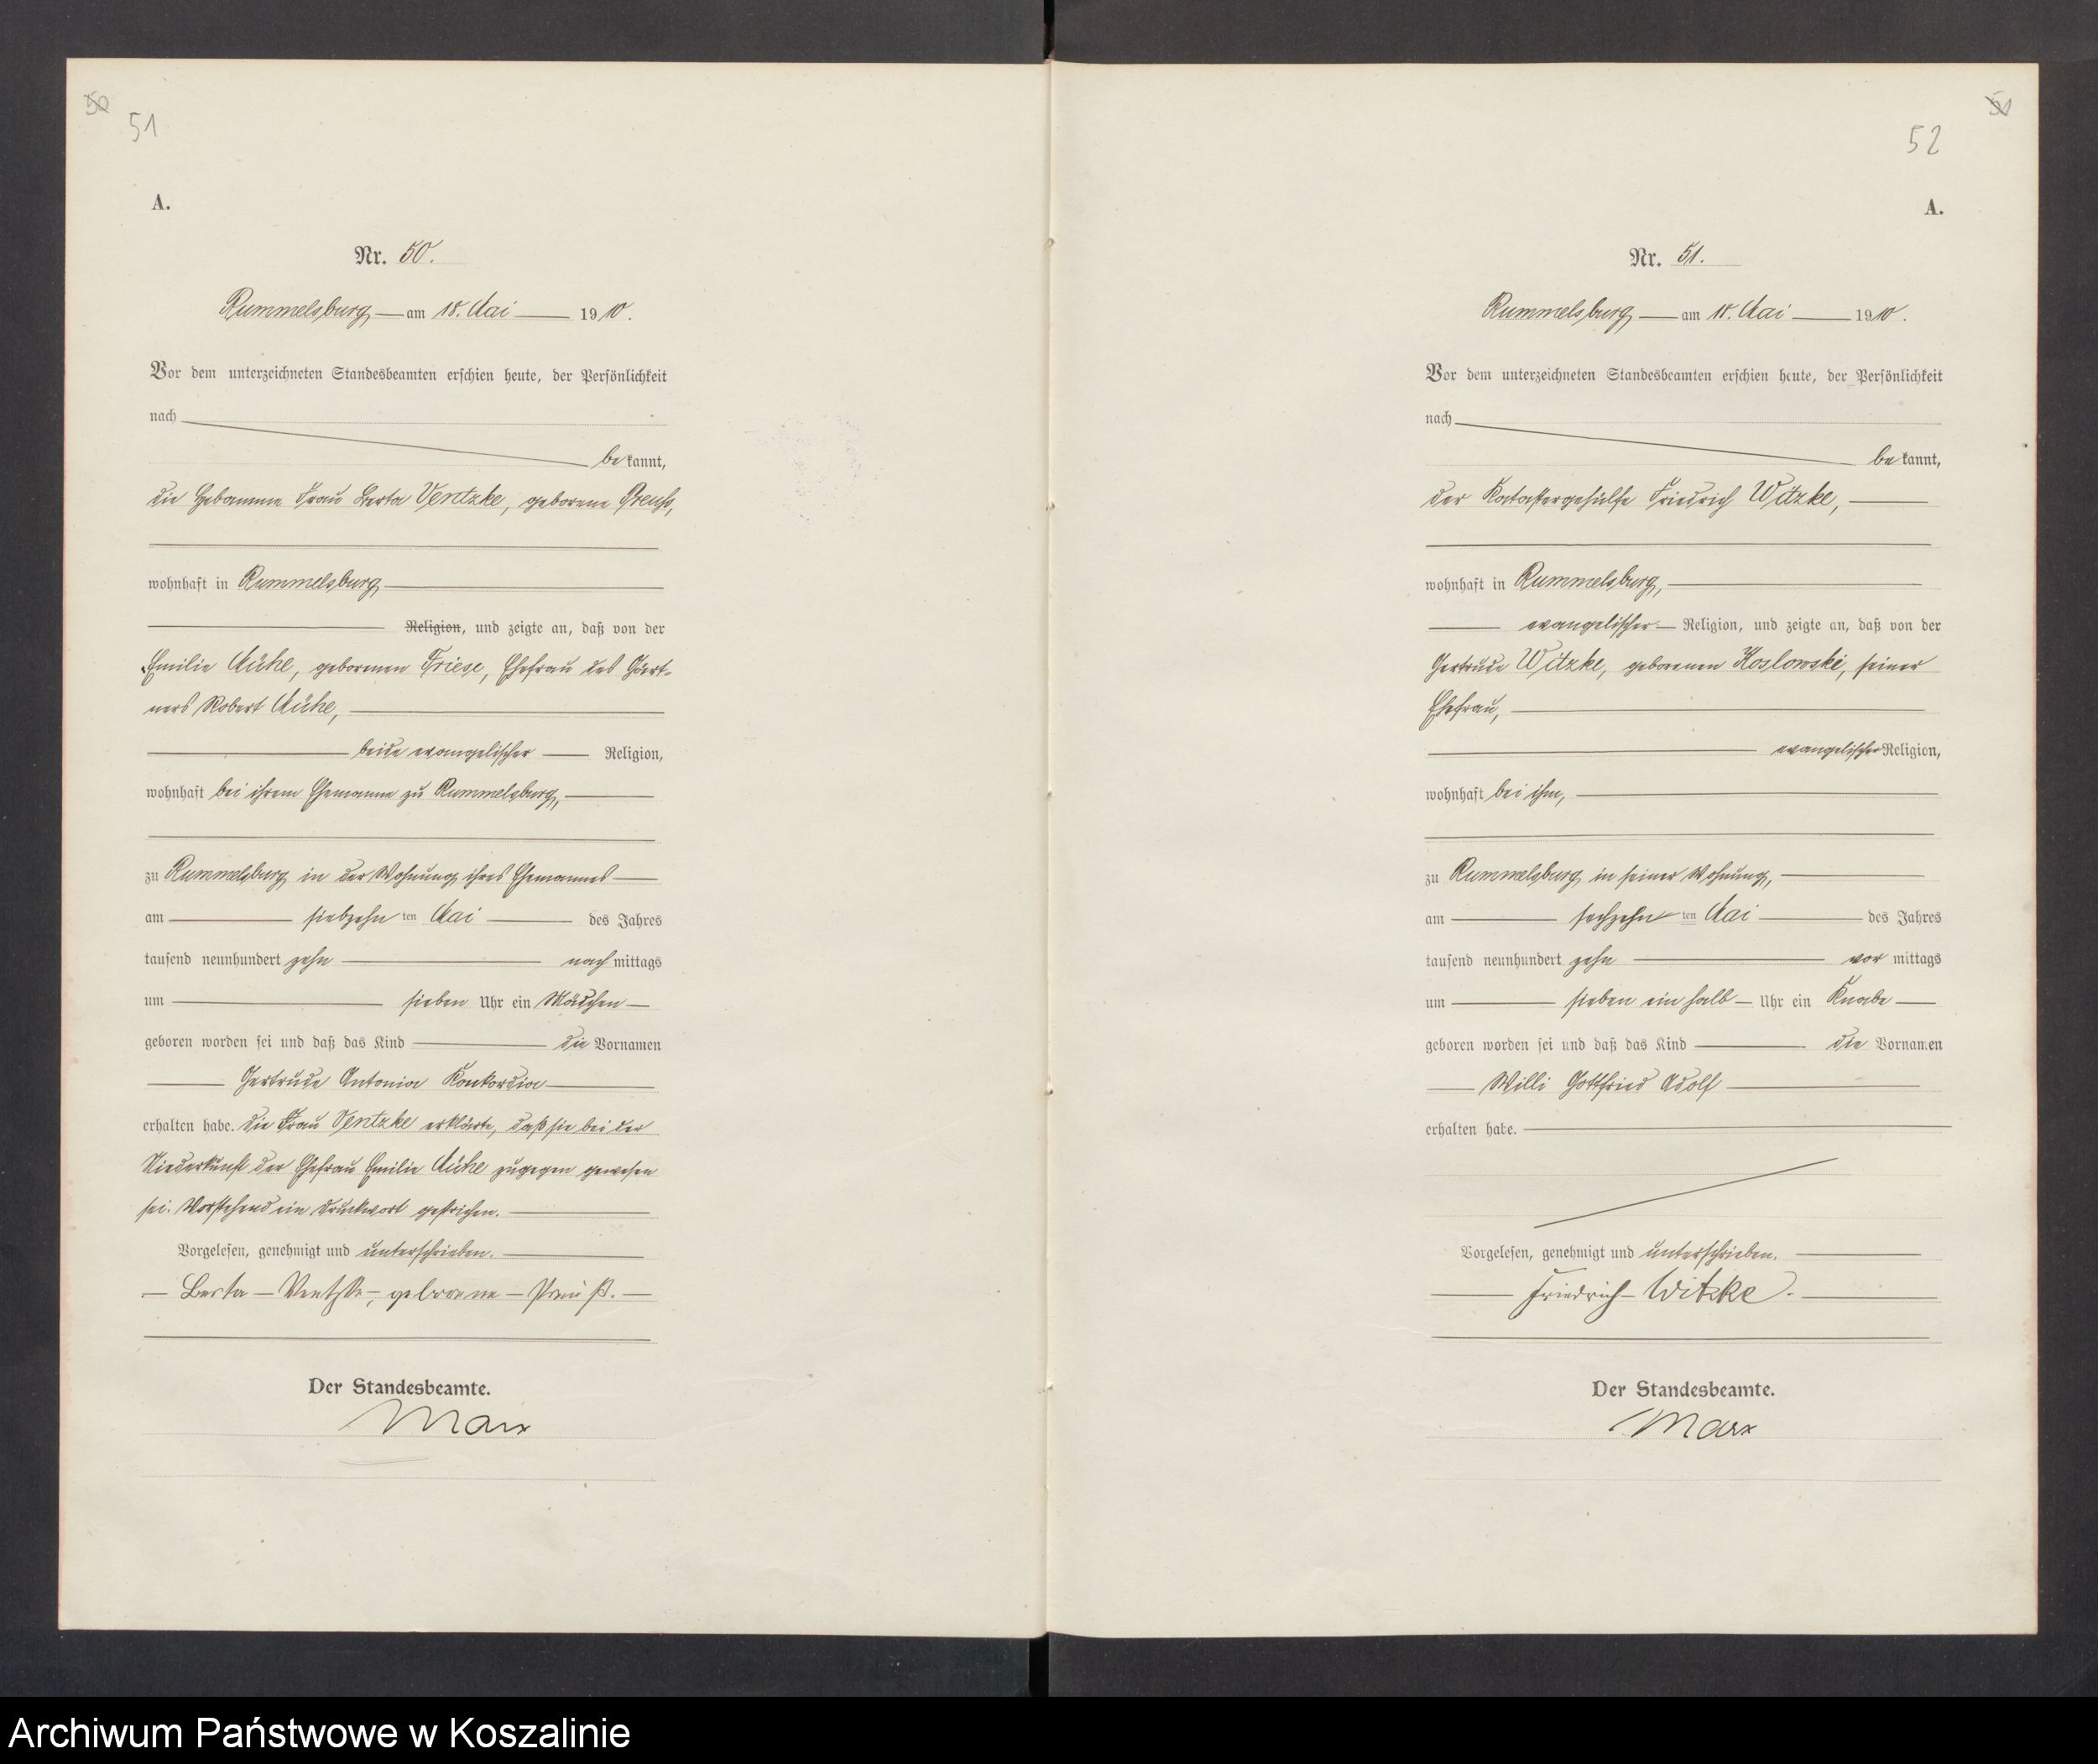 50
51
A.
Nr. 50.
Rummelsburg am 18. Mai 1910.
Vor dem unterzeichneten Standesbeamten erschien heute, der Persönlichkeit
nach
bekannt,
die Hebamme Frau Berta Ventzke, geborene Preuß,
wohnhaft in Rummelsburg
Religion, und zeigte an, daß von der
Emilie Mühe, geborenen Friese, Ehefrau des Gärt-
ners Robert Mühe,
beide evangelischer Religion,
wohnhaft bei ihrem Ehemanne zu Rummelsburg,
zu Rummelsburg in der Wohnung ihres Ehemannes
am siebzehn ten Mai des Jahres
tausend neunhundert zehn nachmittags
um sieben Uhr ein Mädchen
geboren worden sei und daß das Kind die Vornamen
Gertrude Antonia Konkordia
erhalten habe. Die Frau Ventzke erklärte, daß sie bei der
Niederkunft der Ehefrau Emilie Mühe zugegen gewesen
sei. Vorstehend ein Druckwort gestrichen.
Vorgelesen, genehmigt und unterschrieben.
Berta Ventzke, geborene Preuß.
Der Standesbeamte.
Marx
51
52
A.
Nr. 51.
Rummelsburg am 18. Mai 1910.
Vor dem unterzeichneten Standesbeamten erschien heute, der Persönlichkeit
nach
bekannt,
der Katastergehülfe Friedrich Witzke,
wohnhaft in Rummelsburg,
evangelischer Religion, und zeigte an, daß von der
Gertrude Witzke, geborenen Koslowski, seiner
Ehefrau,
evangelischer Religion,
wohnhaft bei ihm,
zu Rummelsburg in seiner Wohnung,
am sechzehn ten Mai des Jahres
tausend neunhundert zehn vormittags
um sieben ein halb Uhr ein Knabe
geboren worden sei und daß das Kind die Vornamen
Willi Gottfried Adolf
erhalten habe.
Vorgelesen, genehmigt und unterschrieben.
Friedrich Witzke.
Der Standesbeamte.
Marx
Archiwum Państwowe w Koszalinie